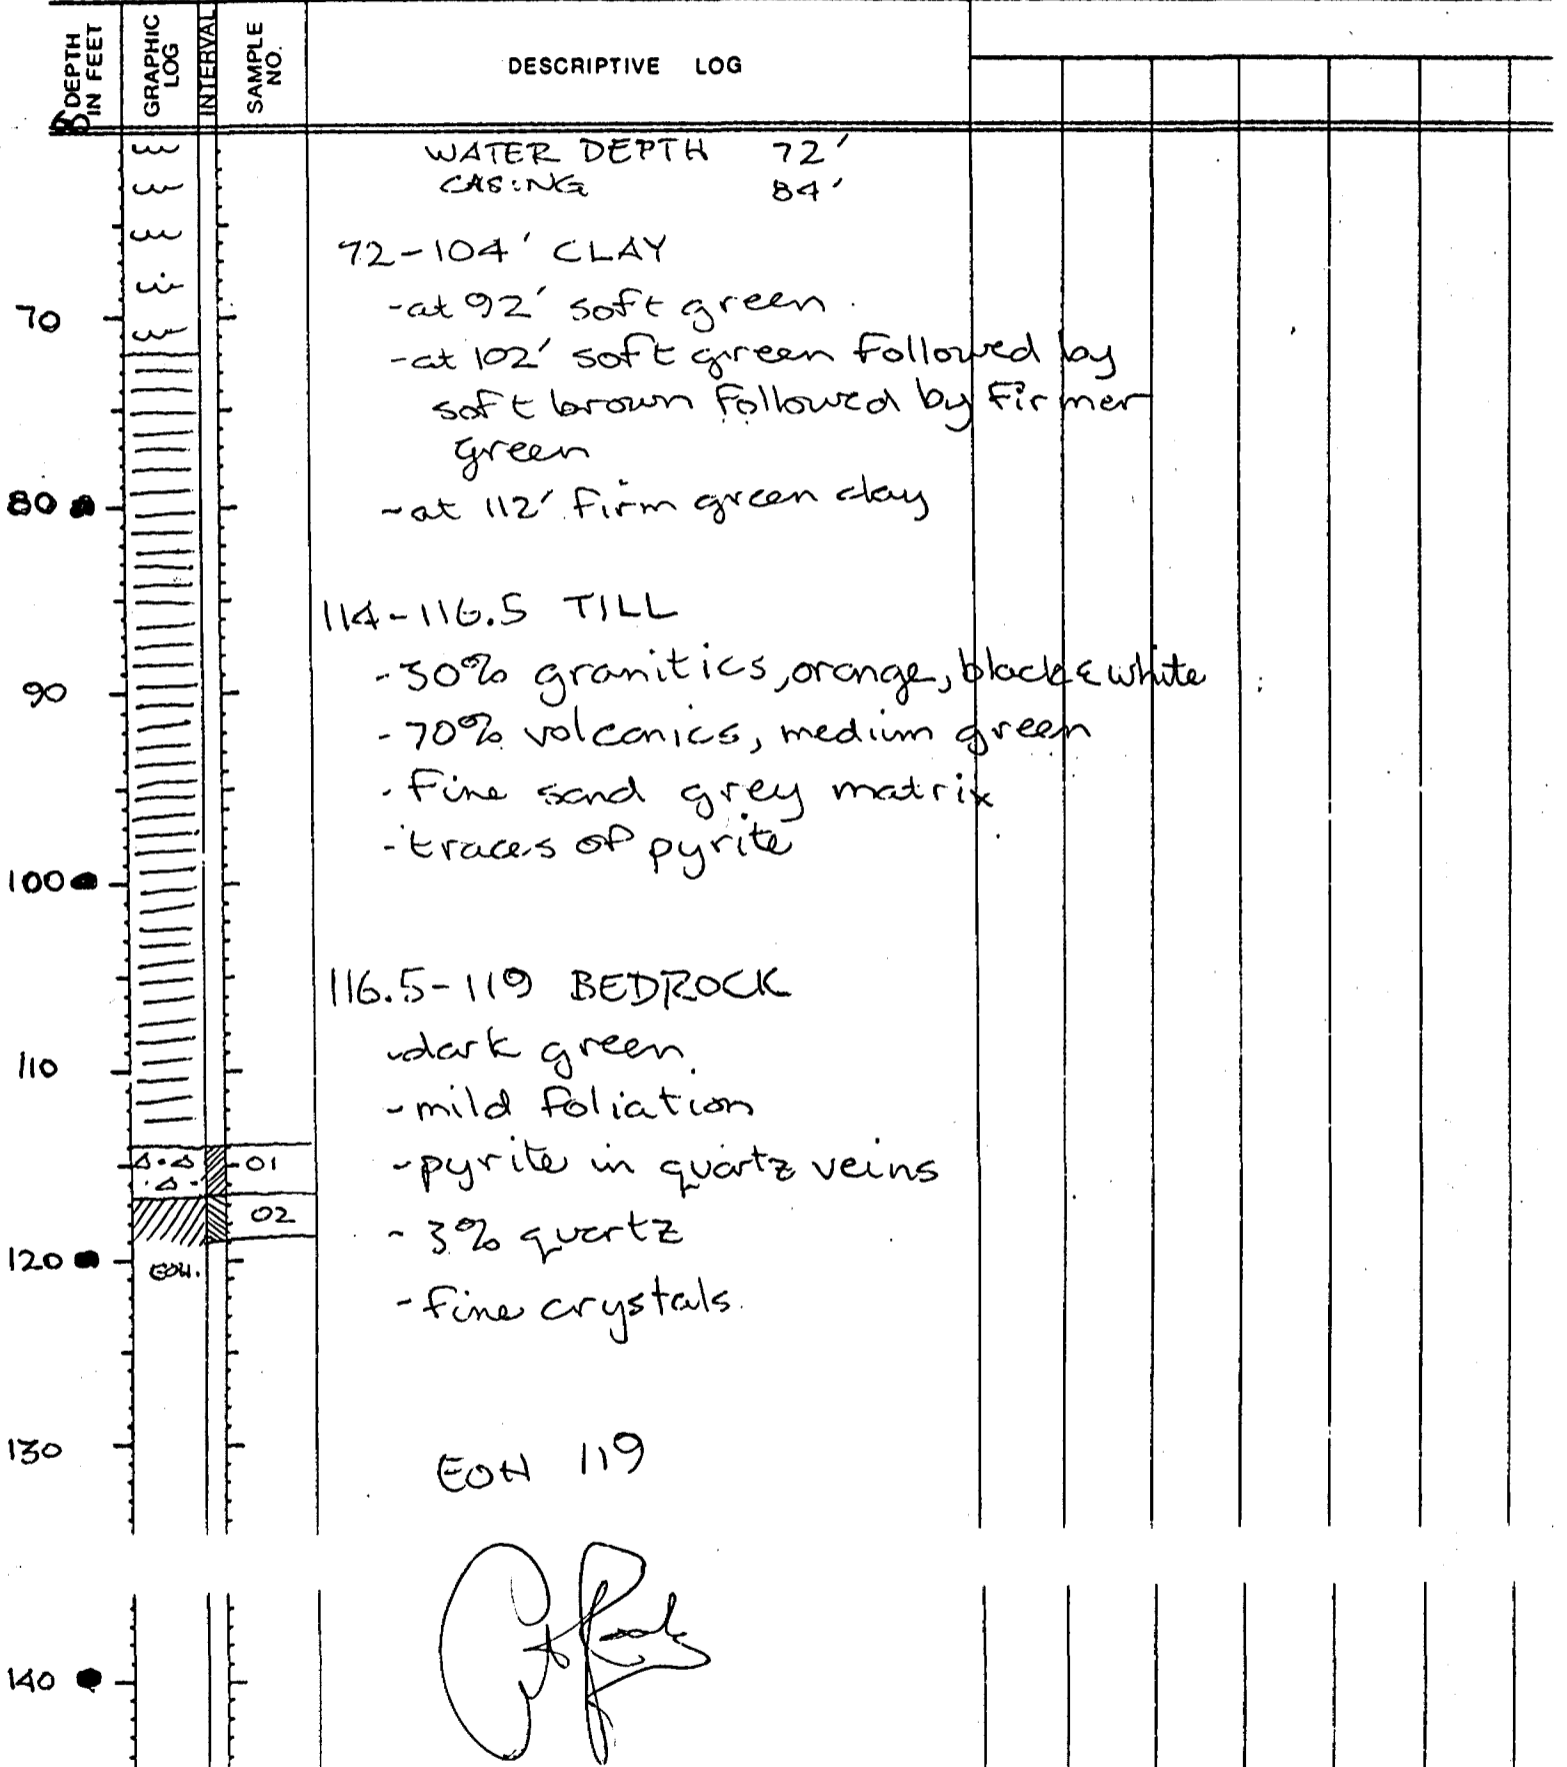 DEPTH IN FEET GRAPHIC LOG INTERVAL SAMPLE NO. DESCRIPTIVE LOG
WATER DEPTH 72'
CASING 84'
72-104' CLAY
-at 92' soft green
70
-at 102' soft green followed by
soft brown followed by firmer
green
80
-at 112' firm green clay
114-116.5 TILL
-30% granitics, orange, black & white
90
-70% volcanics, medium green
-fine sand grey matrix
-traces of pyrite
100
116.5-119 BEDROCK
-dark green
110
-mild foliation
01
-pyrite in quartz veins
02
-3% quartz
120
EOH.
-fine crystals.
130
EOH 119
140